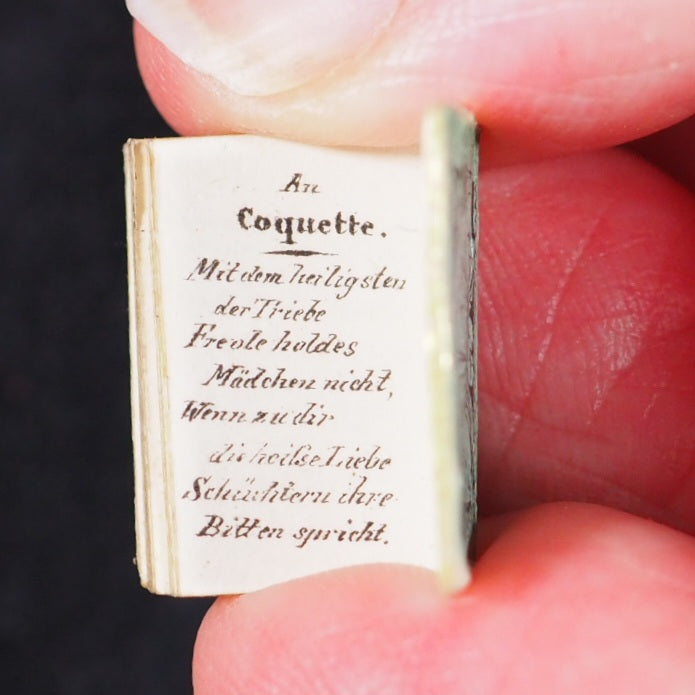 An
Coquette.
Mit dem heiligsten
der Triebe
Frevle holdes
Mädchen nicht,
Wenn zu dir
die heiſse Liebe
Schüchtern ihre
Bitten spricht.